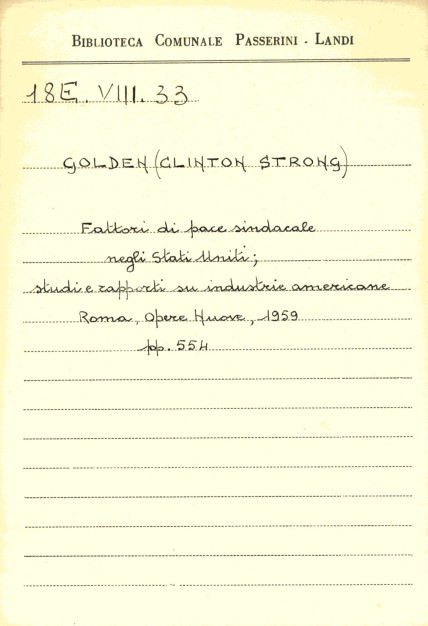 BIBLIOTECA COMUNALE PASSERINI - LANDI
18E. VIII. 33
GOLDEN (CLINTON STRONG)
Fattori di pace sindacale
negli Stati Uniti;
studi e rapporti su industrie americane
Roma, Opere Nuove, 1959
pp. 554